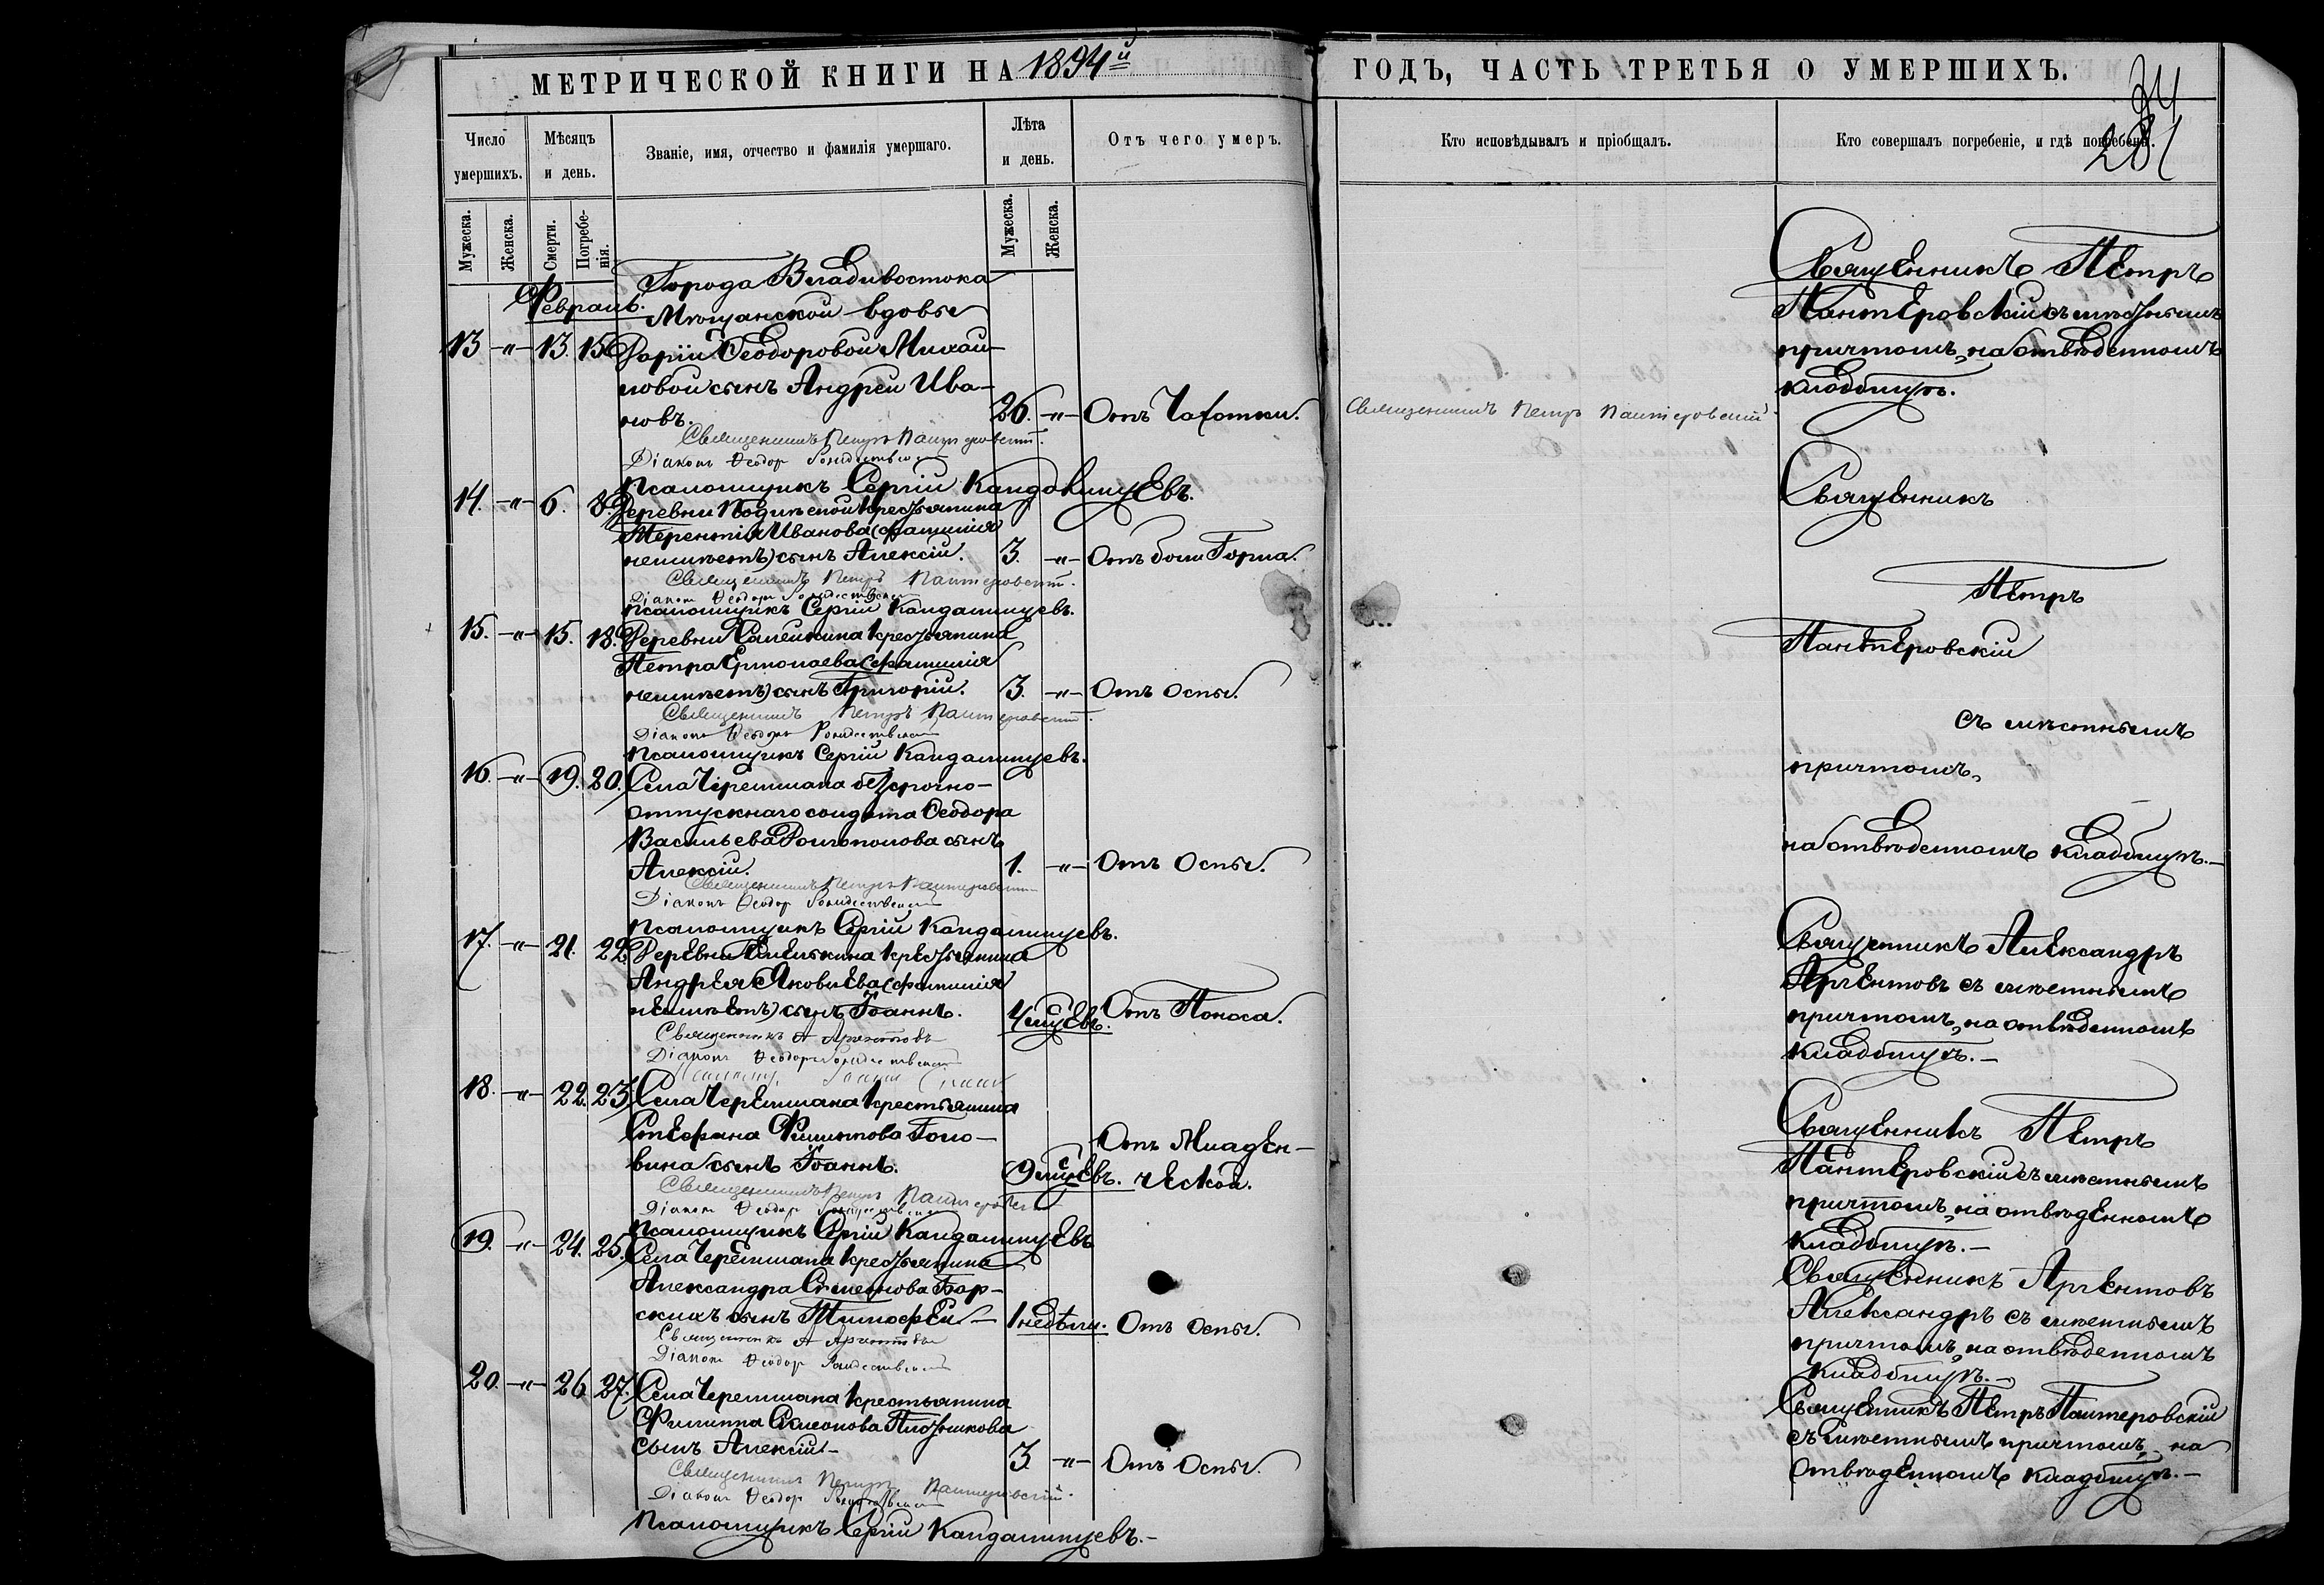 МЕТРИЧЕСКОЙ КНИГИ НА 1894й
Число умершихъ.
Мѣсяцъ и день.
Званіе, имя, отчество и фамилія умершаго.
Лѣта и день.
Отъ чего умеръ.
Мужеска.
Женска.
Смерти.
Погребе-
нія.
Мужеска.
Женска.
Февраль.
Города Владивостока
Мѣщанской вдовы
13 -„- 13. 15 Даріи Ѳеодоровой Михаи-
ловой сынъ Андрей Ива-
новъ. 26. -„- Отъ Чахотки.
Священникъ Петръ Пантеровскій.
Діаконъ Ѳеодоръ Рождественскій
Псаломщикъ Сергій Кандалинцевъ.
14. -„- 6. 8. Деревни крестьянина
Терентія Иванова (фамиліи
неимѣетъ) сынъ Алексій. 3. -„- Отъ боли Горла.
Священникъ Петръ Пантеровскій.
Діаконъ Ѳеодоръ Рождественскій
Псаломщикъ Сергій Кандалинцевъ.
15. -„- 15. 18. Деревни крестьянина
Петра Ермолаева (фамиліи
неимѣетъ) сынъ Григорій. 3. -„- Отъ Оспы.
Священникъ Петръ Пантеровскій.
Діаконъ Ѳеодоръ Рождественскій
Псаломщикъ Сергій Кандалинцевъ.
16. -„- 19. 20. Села Черемшана безсрочно-
отпускнаго солдата Ѳеодора
Васильева сынъ
Алексій. 1. -„- Отъ Оспы.
Священникъ Петръ Пантеровскій
Діаконъ Ѳеодоръ Рождественскій
Псаломщикъ Сергій Кандалинцевъ.
17. -„- 21. 22. Деревни крестьянина
Андрея Яковлева (фамиліи
неимѣетъ) сынъ Іоаннъ. 4 мѣсцевъ. Отъ Поноса.
Священникъ А Аргентовъ
Діаконъ Ѳеодоръ Рождественскій
18. -„- 22. 23. Села Черемшана крестьянина
Стефана Филиппова Голо-
вина сынъ Іоаннъ. 9 мѣсцевъ. Отъ Младен-
ческой.
Священникъ Петръ Пантеровскій
Діаконъ Ѳеодоръ Рождественскій
Псаломщикъ Сергій Кандалинцевъ
19. -„- 24. 25. Села Черемшана крестьянина
Александра Симеонова Бор-
скихъ сынъ Тимофей 1 недѣли. Отъ Оспы.
Священникъ А Аргентовъ
Діаконъ Ѳеодоръ Рождественскій
20. -„- 26 27. Села Черемшана крестьянина
Филиппа Симеонова Плюсникова
сынъ Алексій. 3 -„- Отъ Оспы.
Священникъ Петръ Пантеровскій.
Діаконъ Ѳеодоръ Рождественскій
Псаломщикъ Сергій Кандалинцевъ.
ГОДЪ, ЧАСТЬ ТРЕТЬЯ О УМЕРШИХЪ.
34
281
Кто исповѣдывалъ и пріобщалъ.
Кто совершалъ погребеніе, и гдѣ погребенъ.
Священникъ Петръ Пантеровскій
Священникъ Петръ
Пантеровскій съ мѣстнымъ
причтомъ, на отвѣденномъ
кладбищѣ.
Священникъ
Петръ
Пантеровскій
съ мѣстнымъ
причтомъ,
на отвѣденномъ кладбищѣ.
Священникъ Александръ
Аргентовъ съ мѣстнымъ
причтомъ, на отвѣденномъ
кладбищѣ.
Священникъ Петръ
Пантеровскій съ мѣстнымъ
причтомъ, на отвѣденномъ
кладбищѣ.
Священникъ Аргентовъ
Александръ съ мѣстнымъ
причтомъ, на отвѣденномъ
кладбищѣ.
Священникъ Петръ Пантеровскій
съ мѣстнымъ причтомъ, на
отвѣденномъ кладбищѣ.